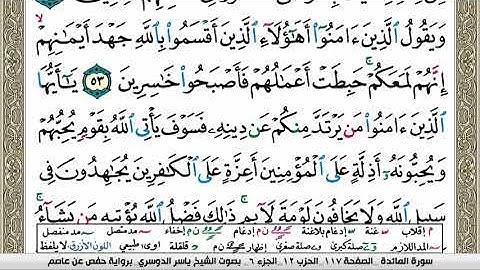 وَيَقُولُ ٱلَّذِينَ ءَامَنُوٓا۟ أَهَٰٓؤُلَآءِ ٱلَّذِينَ أَقْسَمُوا۟ بِٱللَّهِ جَهْدَ أَيْمَٰنِهِمْ
إِنَّهُمْ لَمَعَكُمْ ۚ حَبِطَتْ أَعْمَٰلُهُمْ فَأَصْبَحُوا۟ خَٰسِرِينَ ٥٣ يَٰٓأَيُّهَا
ٱلَّذِينَ ءَامَنُوا۟ مَن يَرْتَدَّ مِنكُمْ عَن دِينِهِۦ فَسَوْفَ يَأْتِى ٱللَّهُ بِقَوْمٍ يُحِبُّهُمْ
وَيُحِبُّونَهُۥٓ أَذِلَّةٍ عَلَى ٱلْمُؤْمِنِينَ أَعِزَّةٍ عَلَى ٱلْكَٰفِرِينَ يُجَٰهِدُونَ فِى
سَبِيلِ ٱللَّهِ وَلَا يَخَافُونَ لَوْمَةَ لَآئِمٍ ۚ ذَٰلِكَ فَضْلُ ٱللَّهِ يُؤْتِيهِ مَن يَشَآءُ ۚ
م إقلاب غنة إدغام بلاغنة ن م إدغام ن م إخفاء مد متصل مد منفصل
المد اللازم صلة كبرى وصلة صغرى ن م إظهار قلقلة اوى طبيعي اللون الأزرق لا يلفظ
سورة المائدة . الصفحة ١١٧ الحزب ١٢ . الجزء ٦ . بصوت الشيخ ياسر الدوسري . برواية حفص عن عاصم